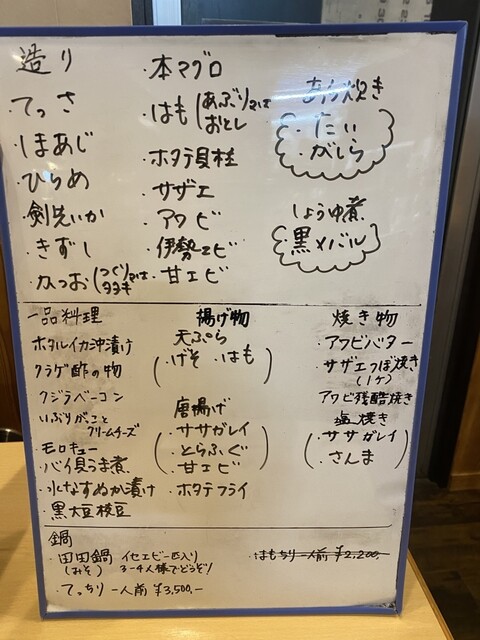 造り
・てっさ
・ほあじ
・ひらめ
・剣先いか
・きずし
・かつお(つくり又は
たたき
・本マグロ
・はも(あぶり又は
おとし
・ホタテ貝柱
・サザエ
・アワビ
・伊勢エビ
・甘エビ
あら炊き
・たい
・がしら
しょうゆ煮
・黒メバル
一品料理
ホタルイカ沖漬け
クラゲ酢の物
クジラベーコン
いぶりがっこと
クリームチーズ
・モロキュー
・バイ貝うま煮
・水なすぬか漬け
・黒大豆枝豆
揚げ物
天ぷら
(・げそ ・はも)
唐揚げ
・ササガレイ
・とらふぐ
・甘エビ
・ホタテフライ
焼き物
・アワビバター
・サザエつぼ焼き
(1ケ)
アワビ残酷焼き
塩焼き
・ササガレイ
・さんま
鍋
・田田鍋 イセエビ一匹入り
(みそ) 3-4人様でどうぞ!
・てっちり 一人前 ¥3,500.-
・はもちり一人前 ¥2,200.